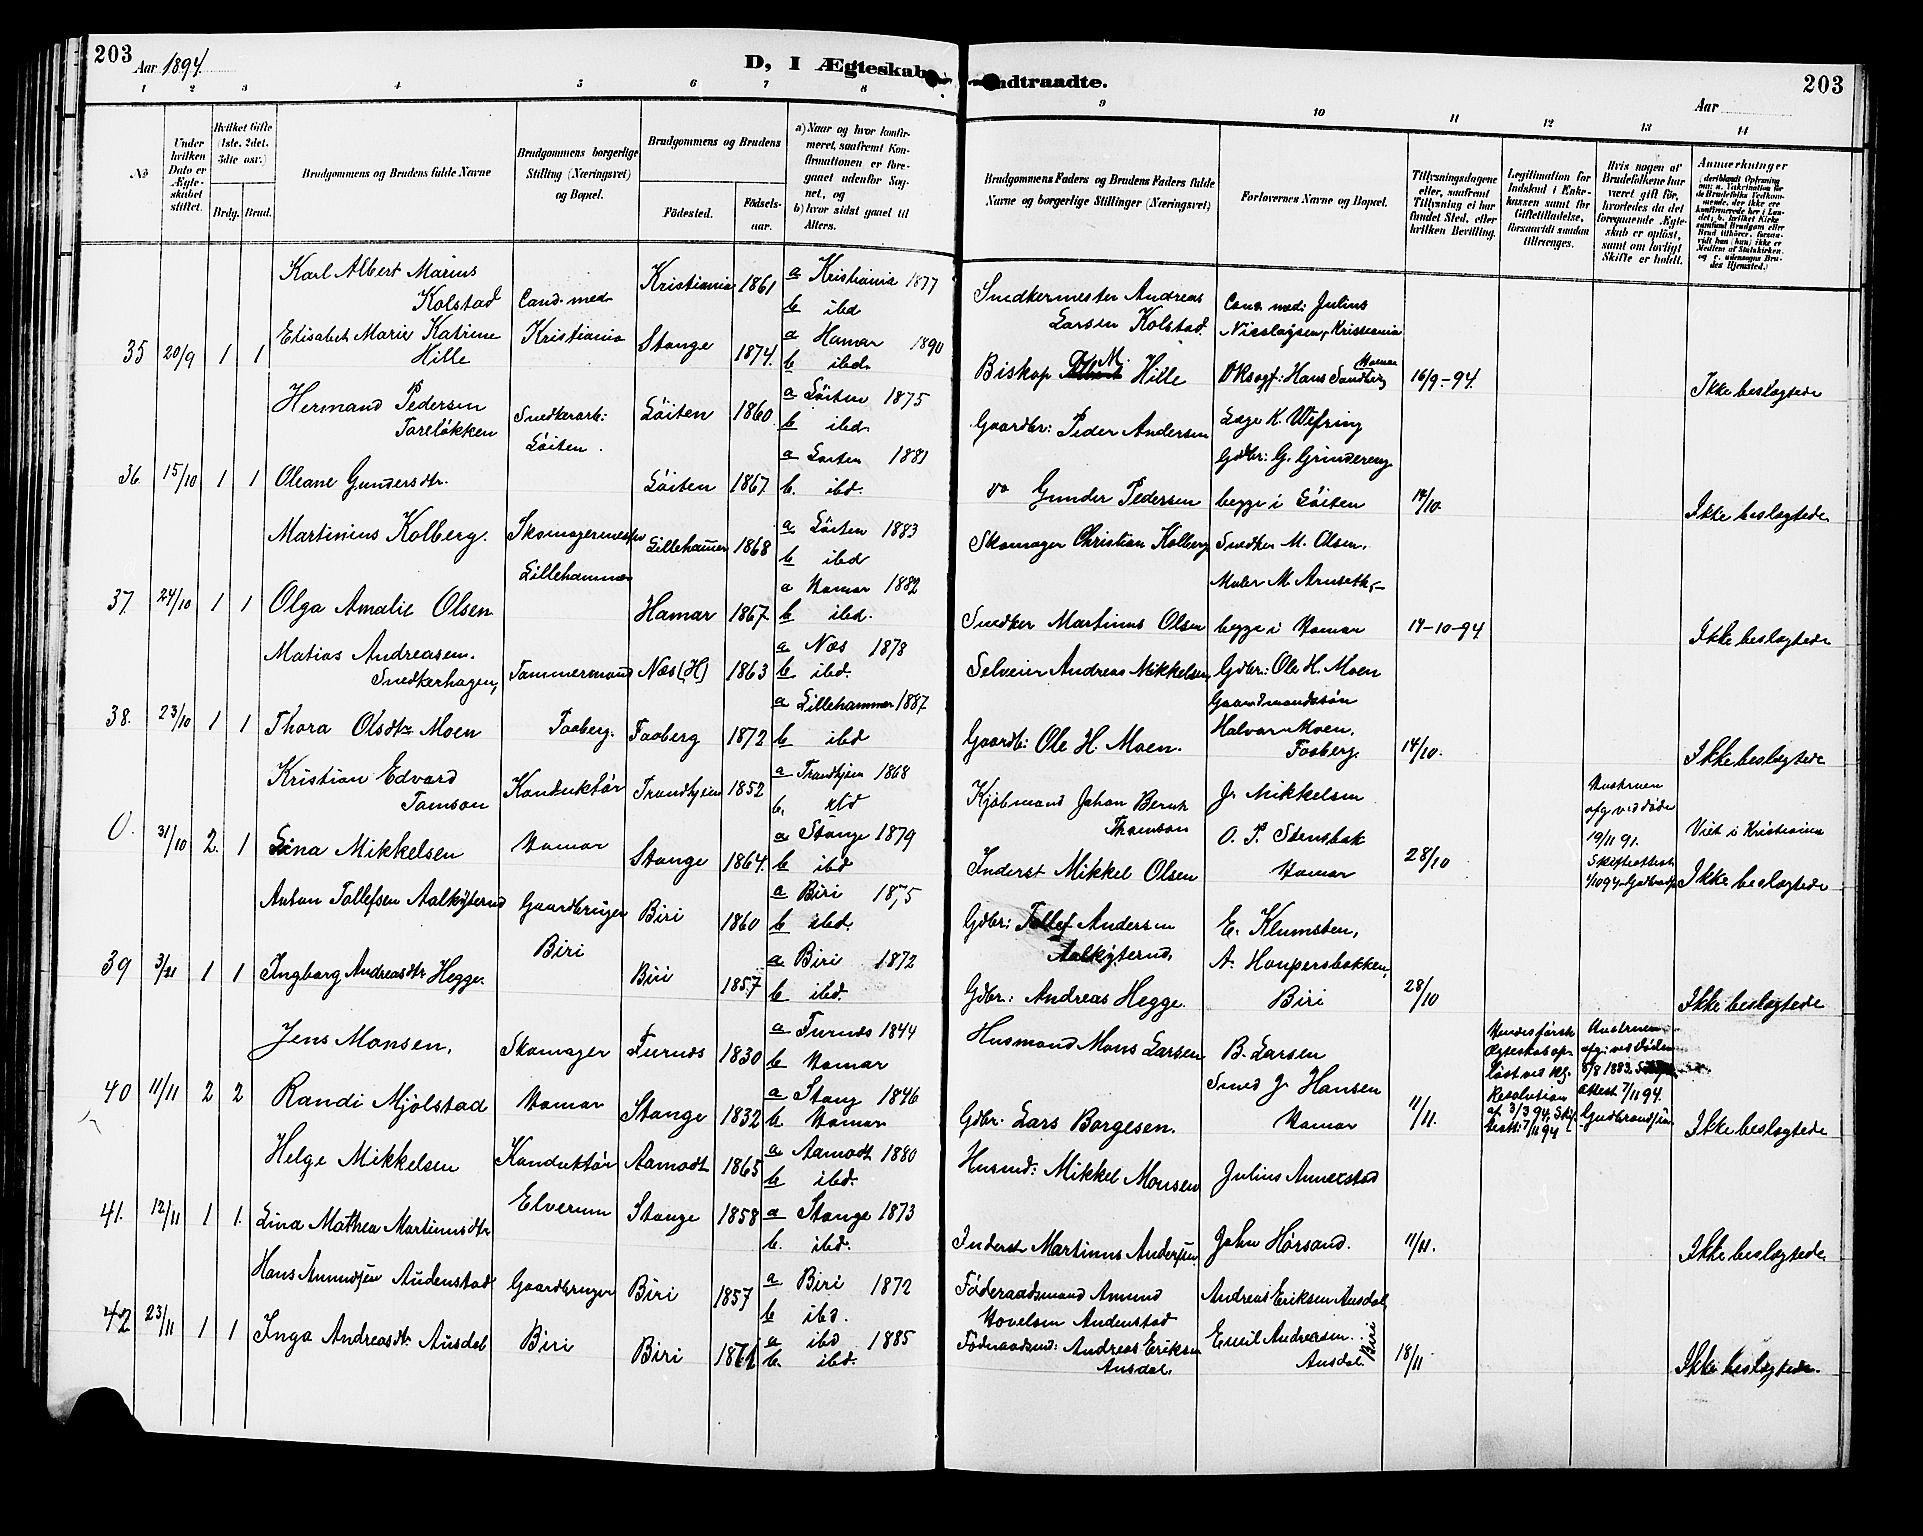 203
Aar 1894.
D, I Ægteskab
ndtraadte.
203
Aar
1 2 3 4 5 6 7 8 9 10 11 12 13 14
No
Under hvilken Dato er Ægteskabet stiftet.
Hvilket Gifte (1ste, 2det, 3die osv.)
Brdg. Brud.
Brudgommens og Brudens fulde Navne
Brudgommens borgerlige Stilling (Næringsvei) og Bopæl.
Brudgommens og Brudens
Födested.
Födselsaar.
a) Naar og hvor konfirmeret, saafremt Konfirmationen er foregaaet udenfor Sognet, og
b) hvor sidst gaaet til Alters.
Brudgommens Faders og Brudens Faders fulde Navne og borgerlige Stillinger (Næringsvei)
Forlovernes Navne og Bopæl.
Tillysningsdagene eller, saafremt Tillysning ei har fundet Sted, efter hvilken Bevilling.
Legitimation for Indskud i Enkekassen samt for Giftetilladelse, forsaavidt saadan tiltrænges.
Hvis nogen af Brudefolkene har været gift för, hvorledes da det foregaaende Ægteskab er oplöst, samt om lovligt Skifte er holdt.
Anmærkninger
Karl Albert Marius Kolstad Cand med. Kristiania 1861 a Kristiania 1877 b ibd Snedkermester Andreas Larsen Kolstad. Cand. med: Julius Nicolaysen, Kristiania
35 20/9 1 1 Elisabet Marie Katrine Hille Kristiania Stange 1874. a Hamar 1890 b ibd. Biskop Hille Oksagf: Hans Sandberg Hamar 16/9-94. Ikke beslægtede
Hermand Pedersen Toreløkken Snedkerarb: Löiten. Löiten 1860. a Löiten 1875 b ibd. Gaardbr: Peder Andersen Læge K. Wefring
36. 15/10 1 1 Oleane Gundersdtr. Löiten 1867 a Löiten 1881 b. ibd. do Gunder Pedersen Gdbr: G. Grindereng begge i Löiten 14/10. Ikke beslægtede
Martinius Kolberg. Skomagermester Lillehammer Lillehammer 1868 a Löiten 1883 b ibd Skomager Christian Kolberg Snedker M. Olsen,
37. 24/10 1 1 Olga Amalie Olsen Hamar 1867 a Hamar 1882 b ibd. Snedker Martinus Olsen Maler M Arnseth, begge i Hamar 14-10-94 Ikke beslægtede
Matias Andreasen Snedkerhagen, Tømmermand Næs (H) 1863 a Næs 1878 b ibd. Selveier Andreas Mikkelsen, Gdbr: Ole H. Moen
38. 23/10 1 1 Thora Olsdtr Moen Faaberg. Faaberg 1872 a Lillehammer 1887 b ibd Gaardb: Ole H. Moen. Gaardmandssön Halvar Moen, Faaberg. 14/10. Ikke beslægtede
Kristian Edvard Tomson Konduktör Trondhjem 1852 a Trondhjem 1868 b. Kjöbmand Johan Bernt Thomson J. Mikkelsen Hustruen afg. ved döde 19/11 91.
0. 31/10 2. 1 Lina Mikkelsen Hamar Stange 1864. a Stange 1879 b ibd Inderst Mikkel Olsen O. P. Stensbak Hamar 28/10 Skifteattest Viet i Kristiania Ikke beslægtede
Anton Tollefsen Aalkyterud Gaardbruger Biri Biri 1860 a Biri 1875 b ibd. Gdbr: Tollef Andersen Aalkyterud, E. Klumsten,
39 3/11 1 1 Ingborg Andreasdtr Hegge. Biri 1857 a Biri 1872 b ibd. Gdbr: Andreas Hegge. Biri 28/10 Ikke beslægtede
Jens Monsen, Skomager Furnes 1830 a Furnes 1844 b Hamar Husmand Mons Larsen B. Larsen
40 11/11 2 2 Randi Mjölstad Hamar Stange 1832 a Stang 1846 b. Hamar Gdbr: Lars Borgesen. Smed J. Hansen Hamar 11/11. Hendes første Ægteskab opløst ved Kgl. Resolution af 3/3 94. 7/11 94 Hustruen afg: ved Döden 8/8 1883. attest 7/11 94. Gudbrandsen Ikke beslægtede
Helge Mikkelsen Konduktör Elverum Aamodt 1865 a Aamodt 1880 b ibd. Husmd: Mikkel Monsen Julius Annerstad
41. 12/11 1 1. Lina Mathea Martinusdtr Stange 1858 a Stange 1873 b. ibd. Inderst Martinus Andersen John Hörsand. 11/11. Ikke beslægtede
Hans Amundsen Audenstad Gaardbruger Biri 1857 a Biri 1872 b ibd. Föderaadsmand Amund Hovelsen Audenstad Andreas Eriksen Ausdal
42 23/11 1 1 Inga Andreasdtr Ausdal Biri Biri 1871 a ibd 1885 b. ibd. Föderaadsmd: Andreas Eriksen Ausdal. Emil Andreasen Ausdal Biri 18/11 Ikke beslægtede.